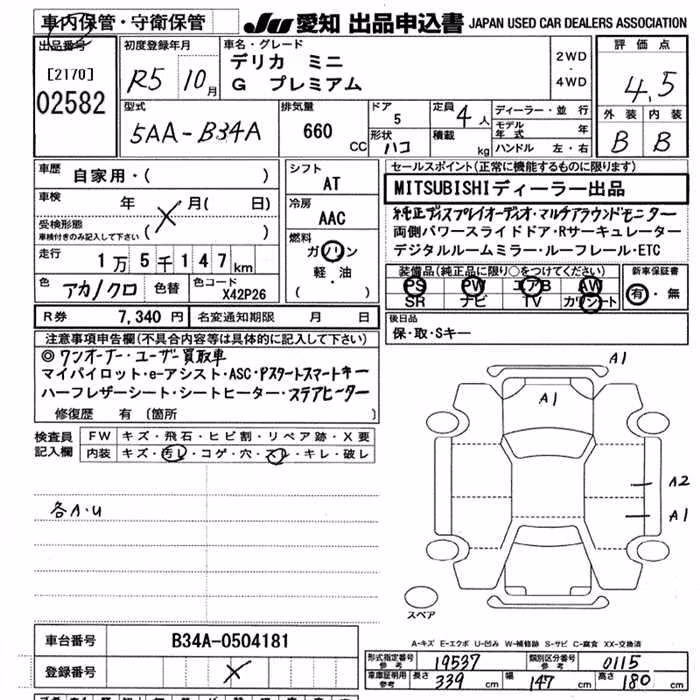 車内保管・守衛保管
JU 愛知 出品申込書 JAPAN USED CAR DEALERS ASSOCIATION
出品番号
[2170]
02582
初度登録年月
R5 10月
車名・グレード
デリカ ミニ
G プレミアム
2WD
・
4WD
評価点
4.5
外装 内装
B B
型式
5AA-B34A
排気量
660 CC
ドア
5
形状
ハコ
定員 4人
積載 kg
ディーラー・並行
モデル年式 年
ハンドル 左・右
車歴 自家用・( )
車検 年 ×月( 日)
受検形態
車検付きのみ記入して下さい ( )
走行 1万5千147km
色 アカ/クロ 色替 色コード X42P26
シフト
AT
冷房
AAC
燃料
ガソリン
軽・油
( )
セールスポイント(正常に機能するものに限ります)
MITSUBISHIディーラー出品
純正ディスプレイオーディオ・マルチアラウンドモニター
両側パワースライドドア・Rサーキュレーター
デジタルルームミラー・ルーフレール・ETC
装備品(純正品に限り○をつけてください)
PS PW エアB AW
SR ナビ TV カワシート
新車保証書
有・無
R券 7,340円 名変通知期限 月 日
後日品
保・取・Sキー
注意事項申告欄(不具合内容等は具体的に記入して下さい)
◎ワンオーナー・ユーザー買取車
マイパイロット・e-アシスト・ASC・Pスタートスマートキー
ハーフレザーシート・シートヒーター・ステアヒーター
修復歴 有 〔箇所 〕
検査員記入欄
FW キズ・飛石・ヒビ割・リペア跡・X要
内装 キズ・汚レ・コゲ・穴・スレ・キレ・破レ
各A・U
A1
A1
A2
A1
スペア
A-キズ E-エクボ U-凹み W-補修跡 S-サビ C-腐食 XX-交換済
車台番号 B34A-0504181
登録番号 ×
形式指定番号 参考 19537 類別区分番号 参考 0115
車庫証明用 参考 長さ 339 cm 幅 147 cm 高さ 180 cm